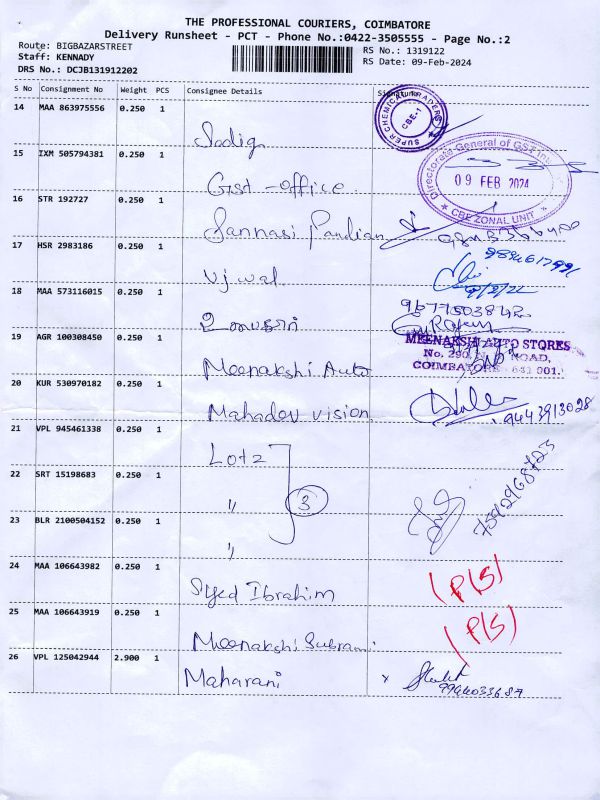 THE PROFESSIONAL COURIERS, COIMBATORE
Delivery Runsheet - PCT - Phone No.:0422-3505555 - Page No.:2
Route: BIGBAZARSTREET
RS No.: 1319122
Staff: KENNADY
RS Date: 09-Feb-2024
DRS No.: DCJB131912202
S No Consignment No Weight PCS Consignee Details Signature
14 MAA 863975556 0.250 1 Sadiq
SUPER CHEMICAL TRADERS CBE-1
15 IXM 505794381 0.250 1 Gst-office
Directorate General of GST
09 FEB 2024
CBE ZONAL UNIT
16 STR 192727 0.250 1 Sannasi Pandian
17 HSR 2983186 0.250 1 Ujwal
18 MAA 573116015 0.250 1
9677503842
19 AGR 100308450 0.250 1 Meenakshi Auto
MEENAKSHI AUTO STORES
No. 290, ROAD,
COIMBATORE - 641 001.
20 KUR 530970182 0.250 1 Mahadev vision 9443913028
21 VPL 945461338 0.250 1 Lotz
22 SRT 15198683 0.250 1 〃 3 7592968723
23 BLR 2100504152 0.250 1 〃
24 MAA 106643982 0.250 1 Syed Ibrahim (P(S)
25 MAA 106643919 0.250 1 Meenakshi Subrami (P(S)
26 VPL 125042944 2.900 1 Maharani x
9944033687